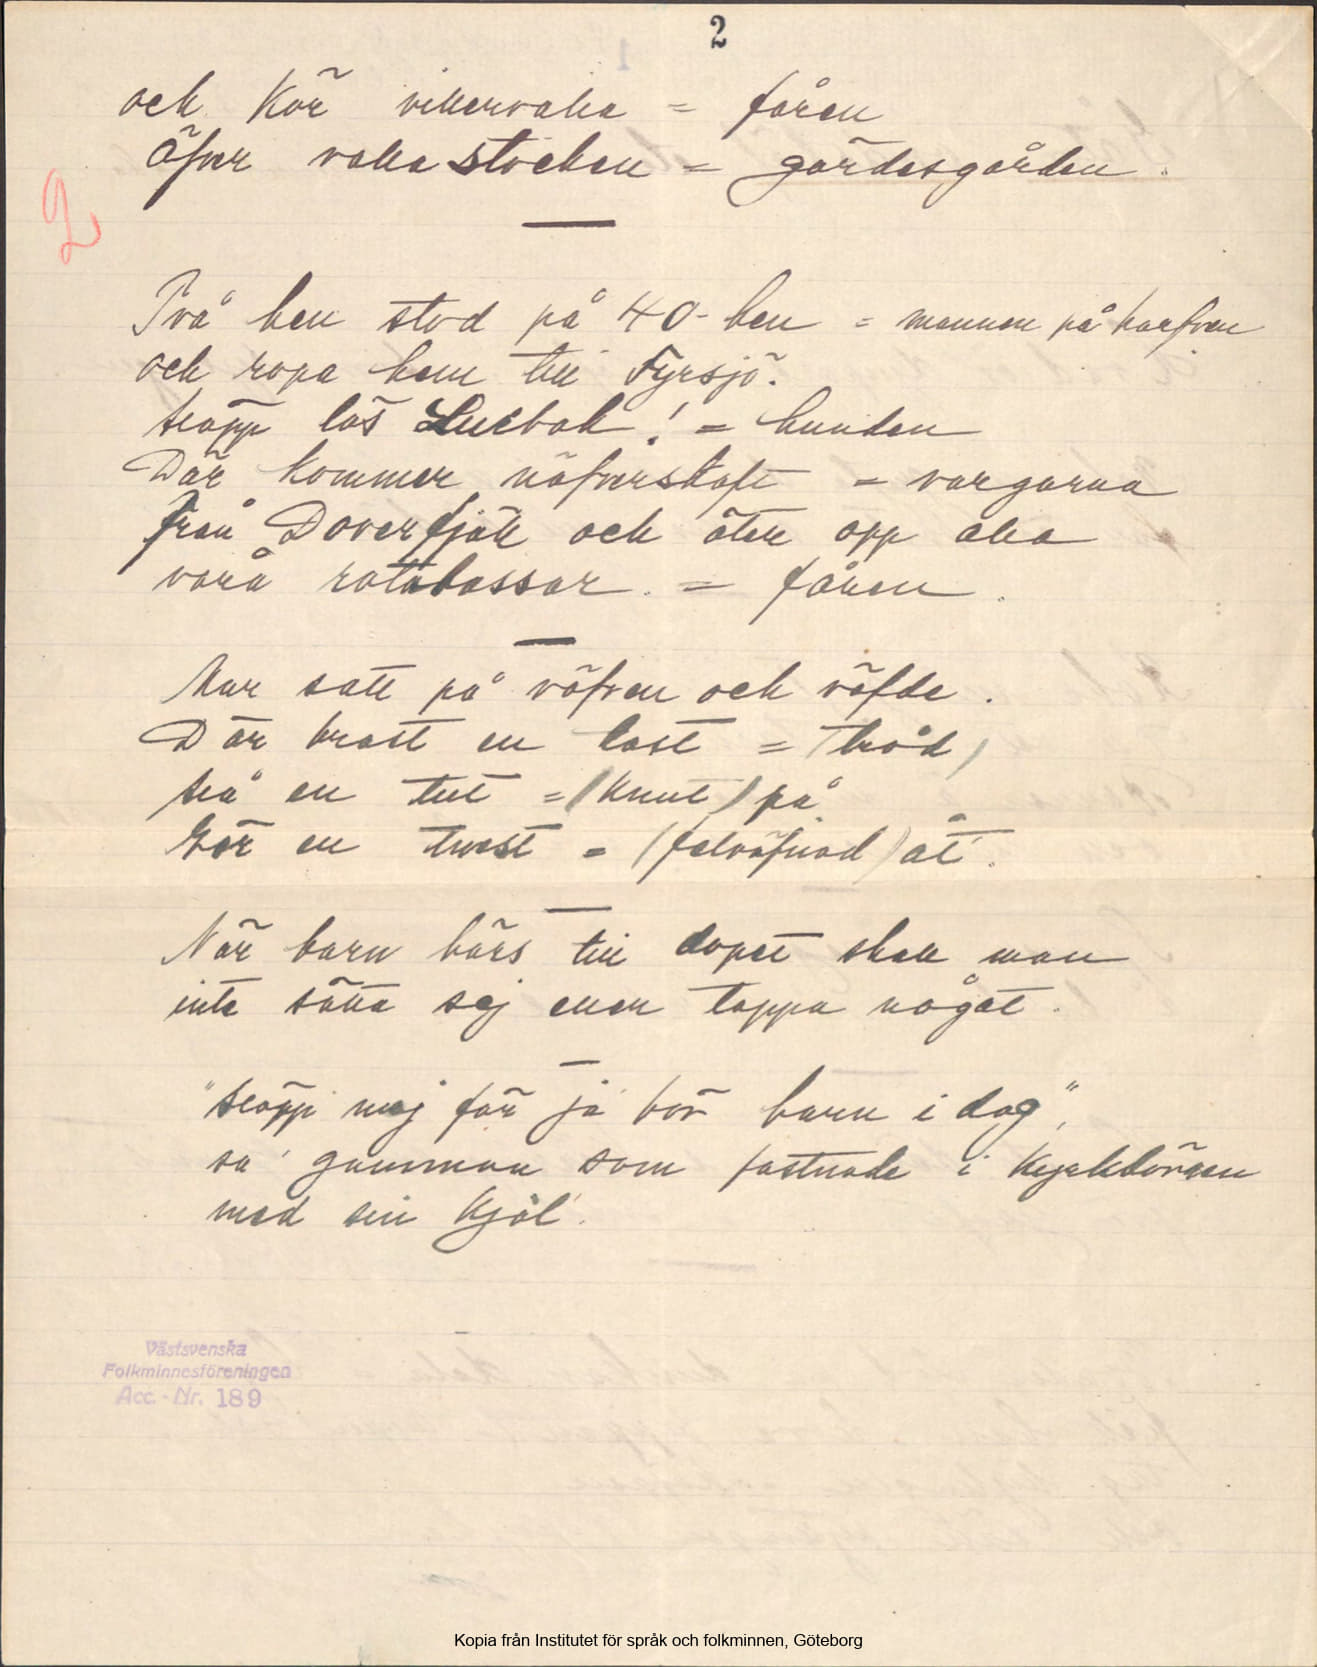 2
och kör villervalla = fåren
öfver vallastocken = gärdesgården.
2
Två ben stod på 40-ben = mannen på harfven
och ropa hem till Fyrsjö.
släpp lös Lurbak! = hunden
Där kommer näfverskaft = vargarna
från Doverfjäll och äter opp alla
vårå rotabassar. = fåren.
Mar satt på väfven och väfde.
Där brast en last = (tråd)
slå en tut = (knut) på
Gör en twest = (felväfnad) åt.
När barn bärs till dopet skall man
inte sätta sej eller tappa något.
"släpp mej för ja' bär barn i dag",
sa' gumman som fastnade i kyrkdörren
med sin kjol.
Västsvenska
Folkminnesföreningen
Acc.-Nr. 189
Kopia från Institutet för språk och folkminnen, Göteborg